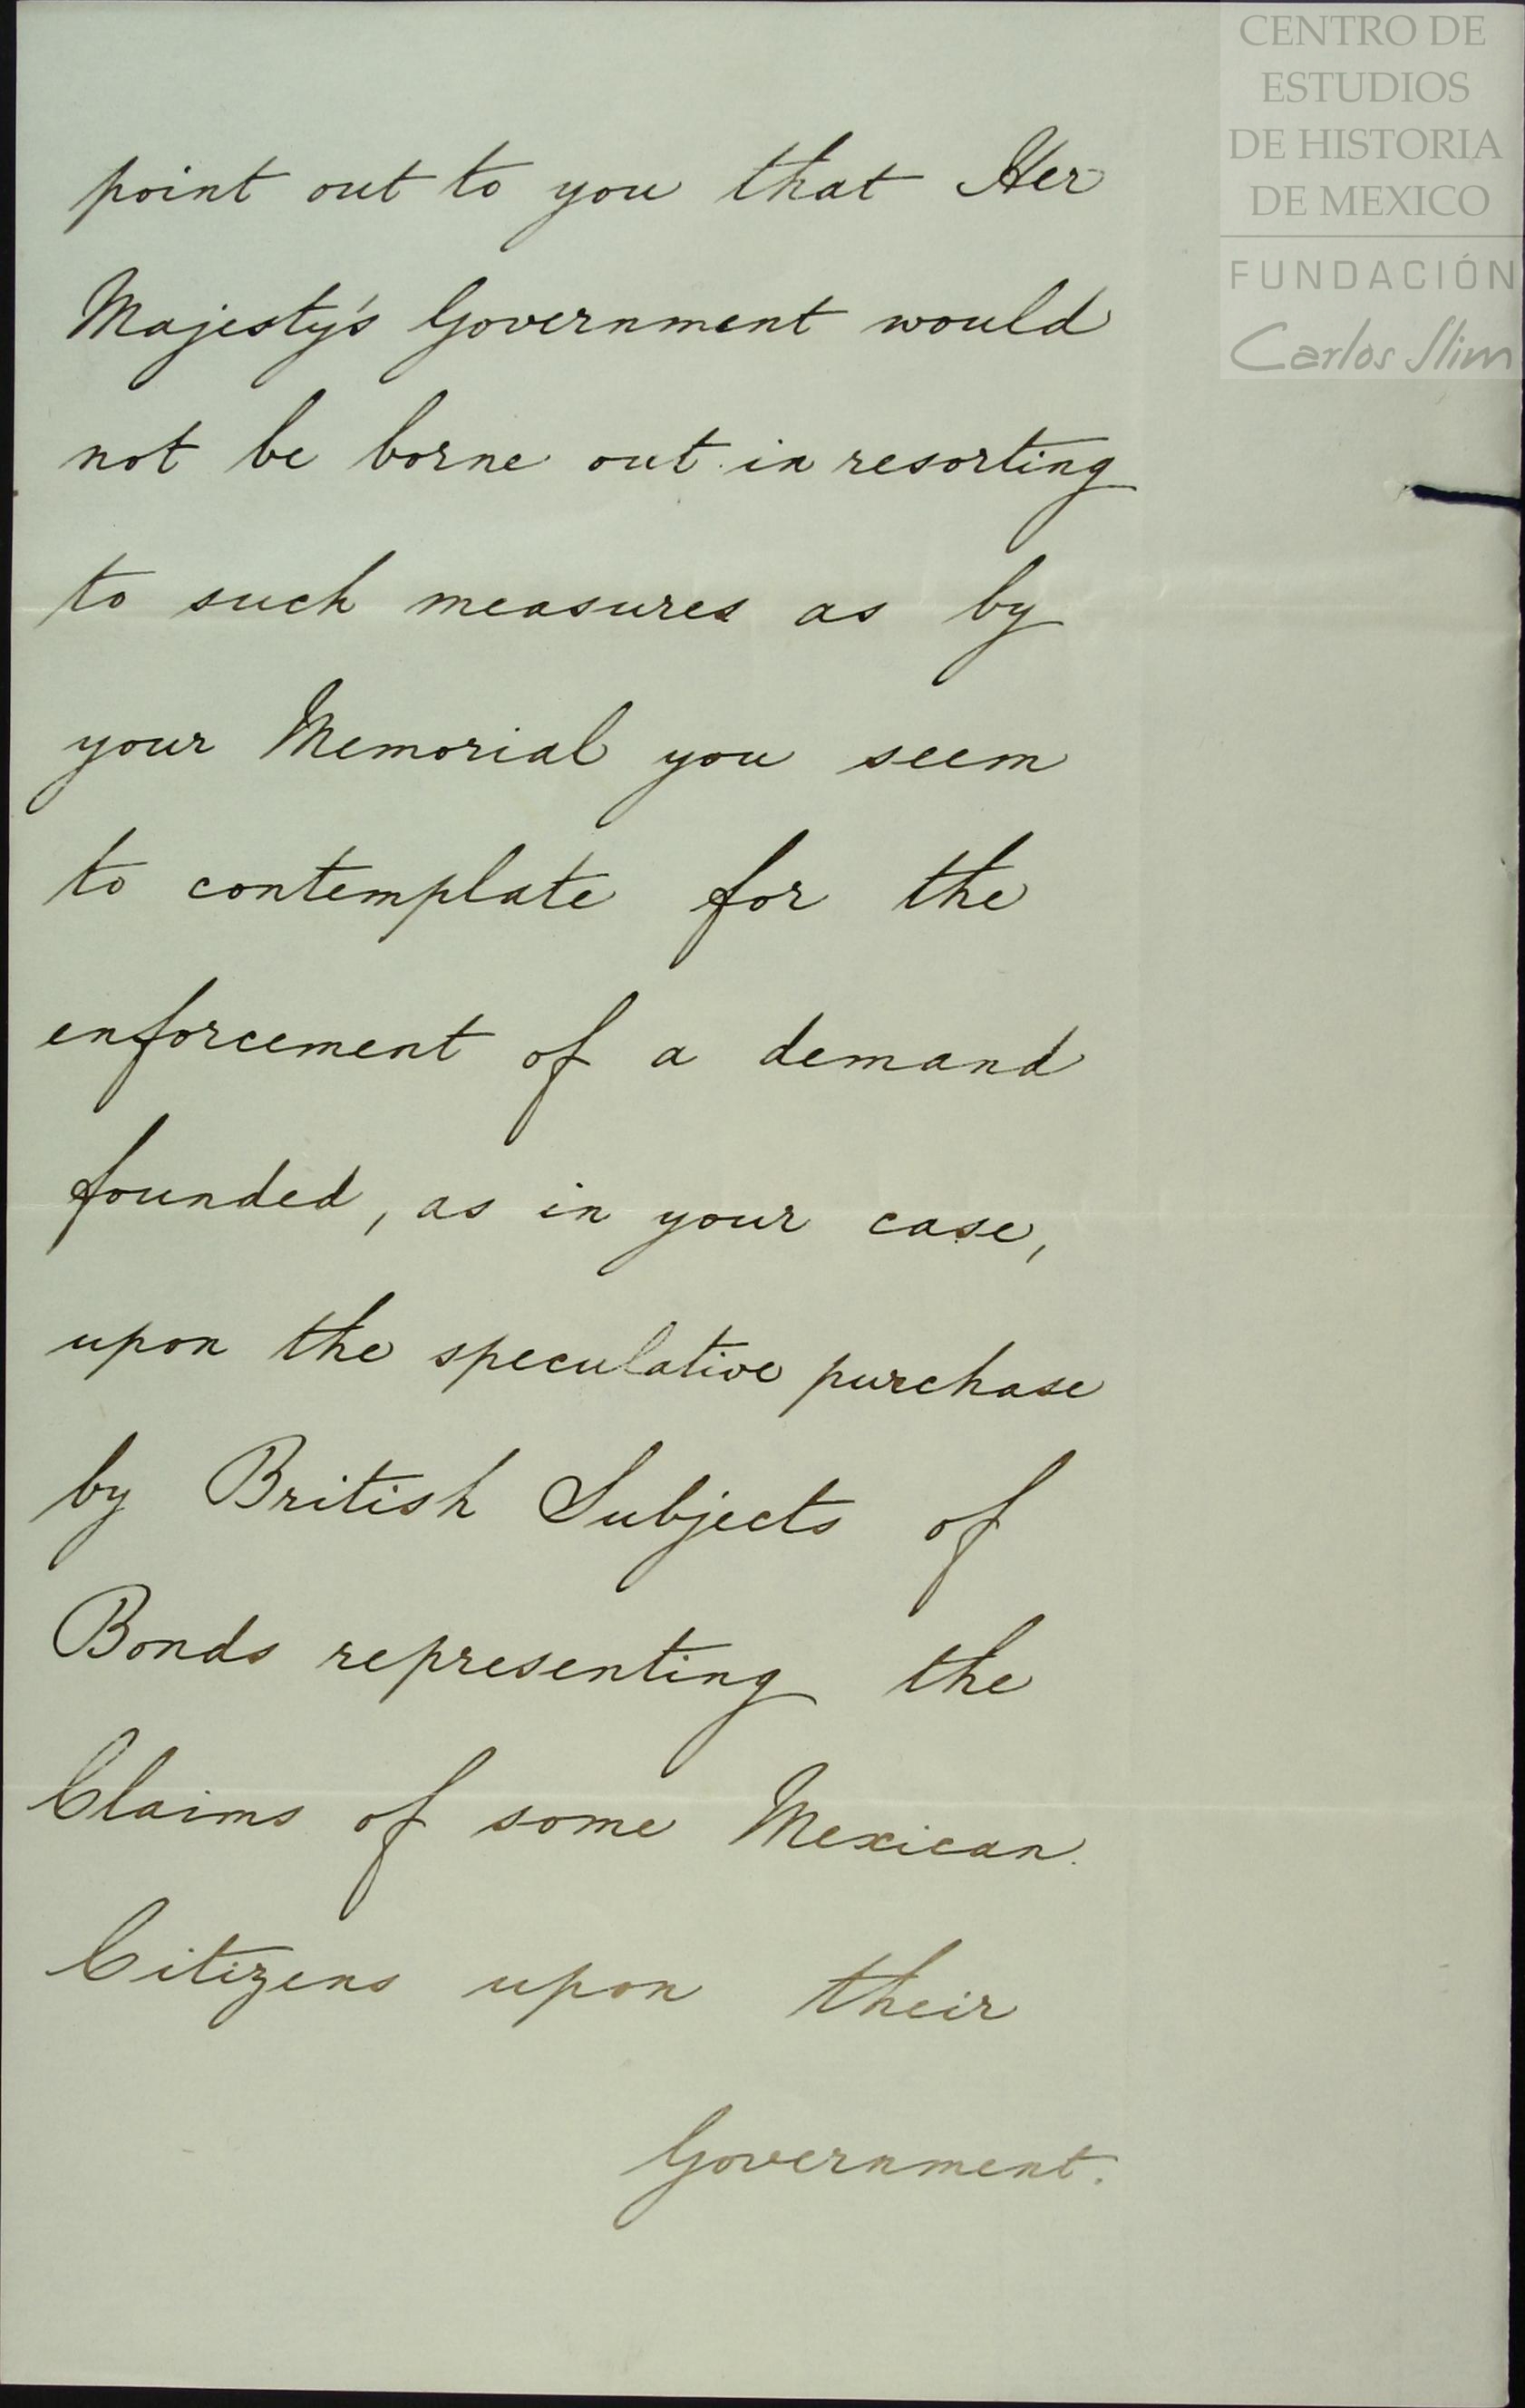 CENTRO DE
ESTUDIOS
DE HISTORIA
DE MEXICO
FUNDACIÓN
Carlos Slim
point out to you that Her
Majesty's Government would
not be borne out in resorting
to such measures as by
your Memorial you seem
to contemplate for the
enforcement of a demand
founded, as in your case,
upon the speculative purchase
by British Subjects of
Bonds representing the
Claims of some Mexican
Citizens upon their
Government.